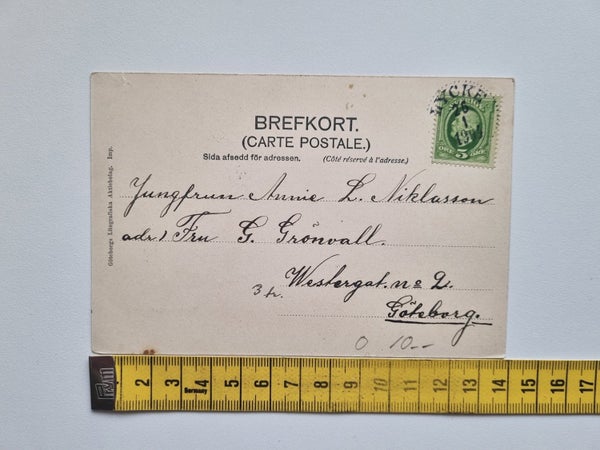 BREFKORT.
(CARTE POSTALE.)
Sida afsedd för adressen. (Côté réservé à l'adresse.)
Göteborgs Litografiska Aktiebolag. Imp.
5
Jungfrun Annie L. Niklasson
adr) Fru G. Grönvall.
Westergat. no 2.
3 tr.
Göteborg.
O 10--
2 3 4 5 6 7 8 9 10 11 12 13 14 15 16 17
Germany